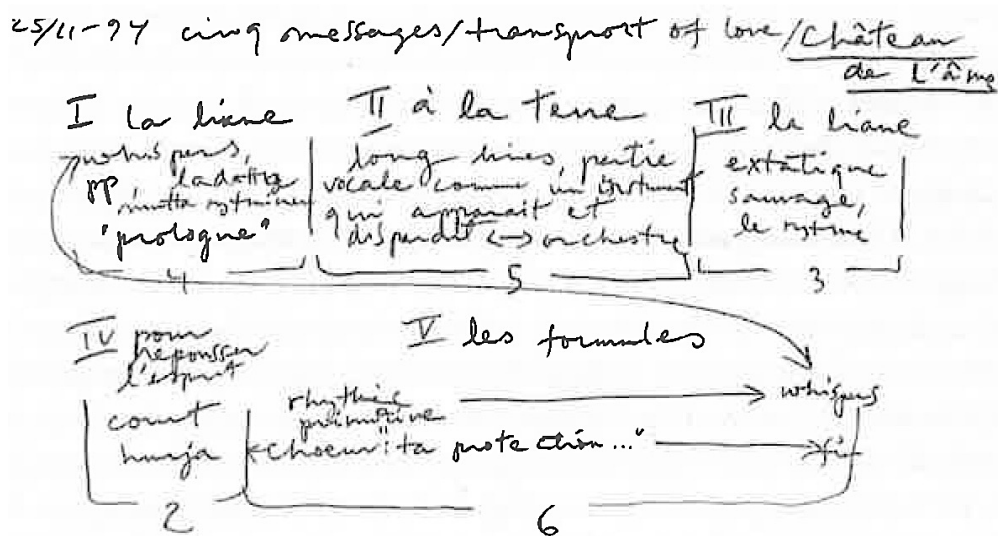 25/11-94 cinq messages/transport of love/Château
de l'âme
I la liane
whispers,
pp ladattu
mutta rytminen
"prologue"
4
II à la Terre
long lines, partie
vocale comme un instrument
qui apparait et
disparait <-> orchestre
5
III la liane
extatique
sauvage,
le rytme
3
IV pour
repousser
l'esprit
court
hurja
2
V les formules
rhythmic
primitive
whispers
choeur: ta protection..."
6